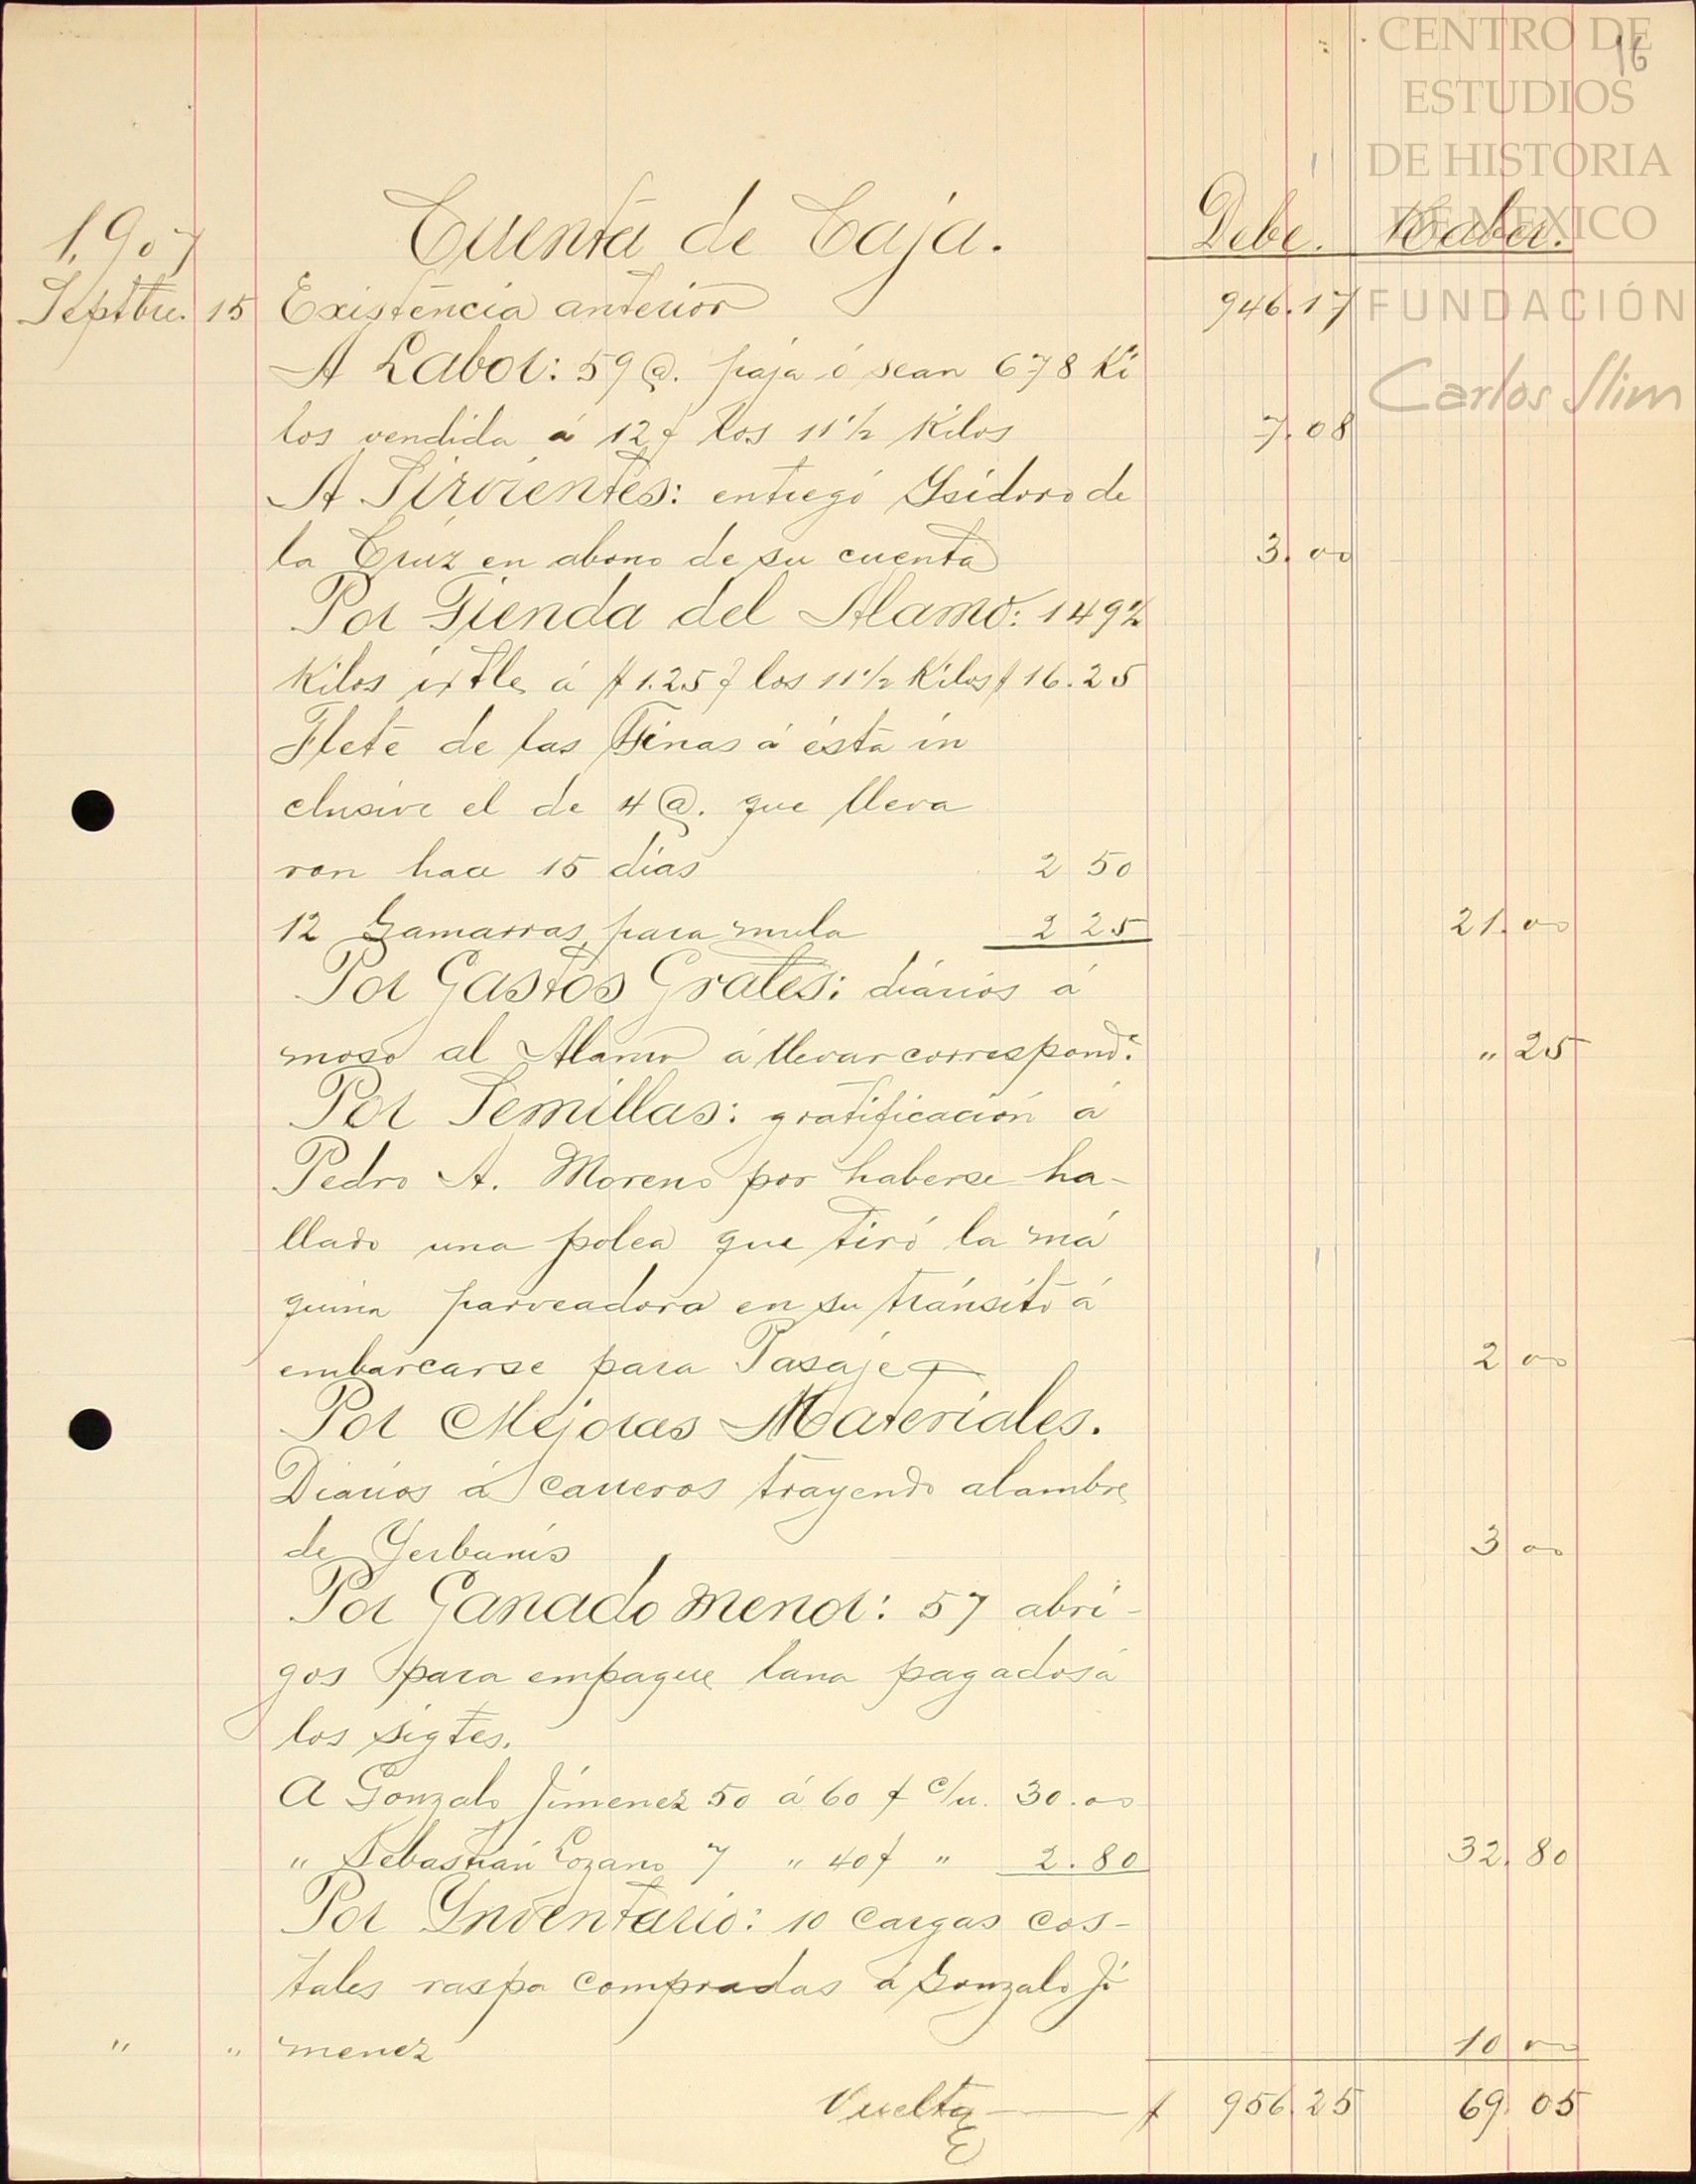 CENTRO DE
ESTUDIOS
DE HISTORIA
DE MEXICO
FUNDACIÓN
Carlos Slim
16
1.907 Cuenta de Caja. Debe. Haber.
Septbre. 15 Existencia anterior 946.17
A Labor: 59 @. paja ó sean 678 Ki
los vendida á 12 ¢ los 11 1/2 Kilos 7.08
A Sirvientes: entregó Ysidoro de
la Cruz en abono de su cuenta 3.00
Por Tienda del Alamo: 149 1/2
Kilos ixtle á $1.25 ¢ los 11 1/2 Kilos $ 16.25
Flete de las Tinas á ésta in
clusive el de 4 @. que lleva
ron hace 15 días 2 50
12 Gamarras para mula 2 25 21.00
Por Gastos Grales: diarios á
moso al Alamo á llevar correspond.ª " 25
Por Semillas: gratificación á
Pedro A. Moreno por haberse ha-
llado una polea que tiró la má
quina parveadora en su tránsito á
embarcarse para Pasaje 2 00
Por Mejoras Materiales.
Diarios á carreros trayendo alambre
de Yerbanís 3 00
Por Ganado menor: 57 abri-
gos para empaque lana pagados á
los sigtes.
A Gonzalo Jimenez 50 á 60 ¢ c/u. 30.00
" Sebastián Lozano 7 " 40 ¢ " 2.80 32.80
Por Ynventario: 10 cargas cos-
tales raspa compradas á Gonzalo Ji
" " menez 10 00
Vuelta $ 956.25 69.05